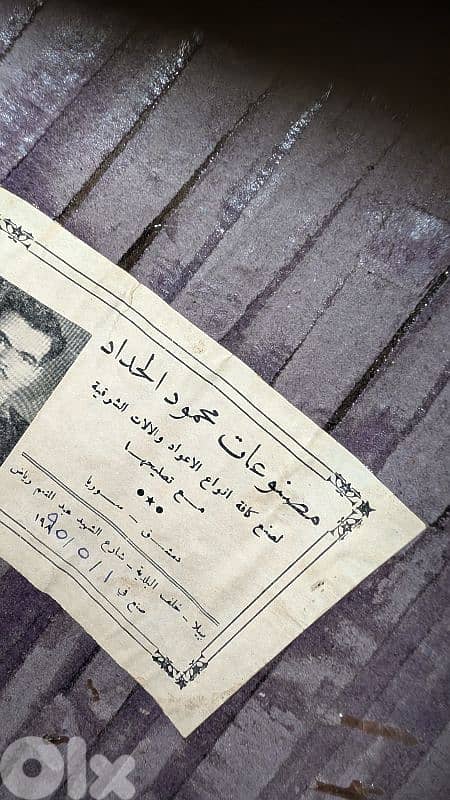 مصنوعات محمود الحداد
لصنع كافة انواع الاعواد والالات الشرقية
مع تصليحها
دمشق - سوريا
ببيلا - خلف البلدية - شارع الشهيد عبد المنعم رياض
صنع في ١ / ٥ /
OLX